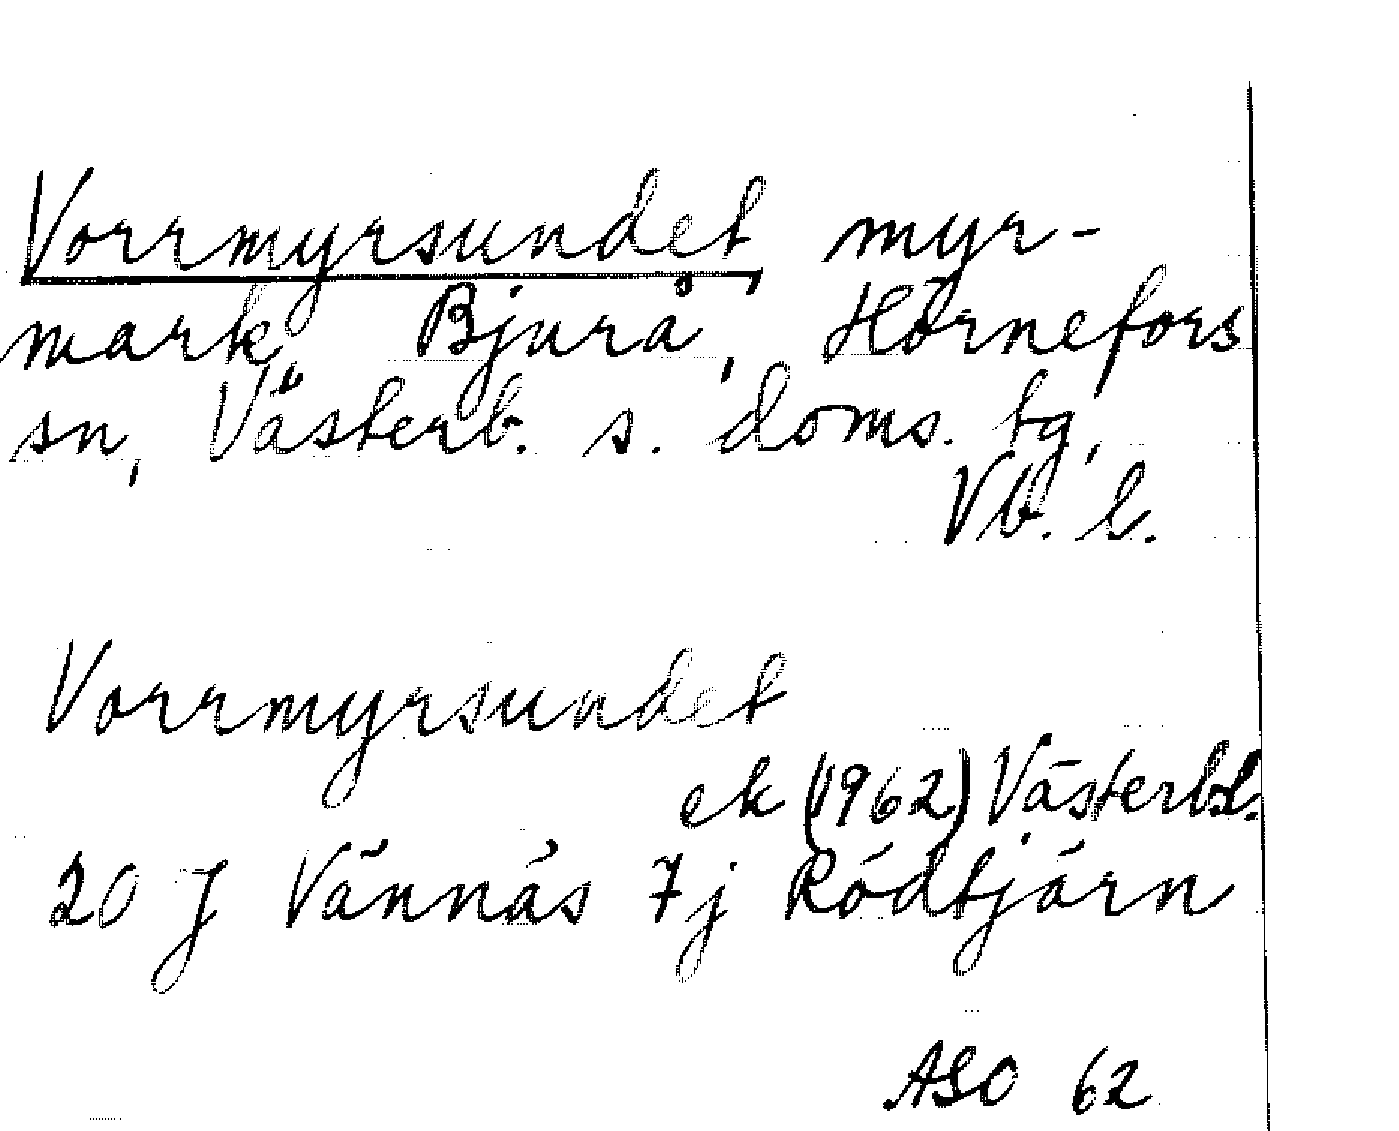 Vorrmyrsundet, myr-
mark Bjurå, Hörnefors
sn, Västerb. s. doms. tg,
Vb. l.
Vorrmyrsundet
ek (1962) Västerb.l.
20 J Vännäs 7j Rödtjärn
ASO 62